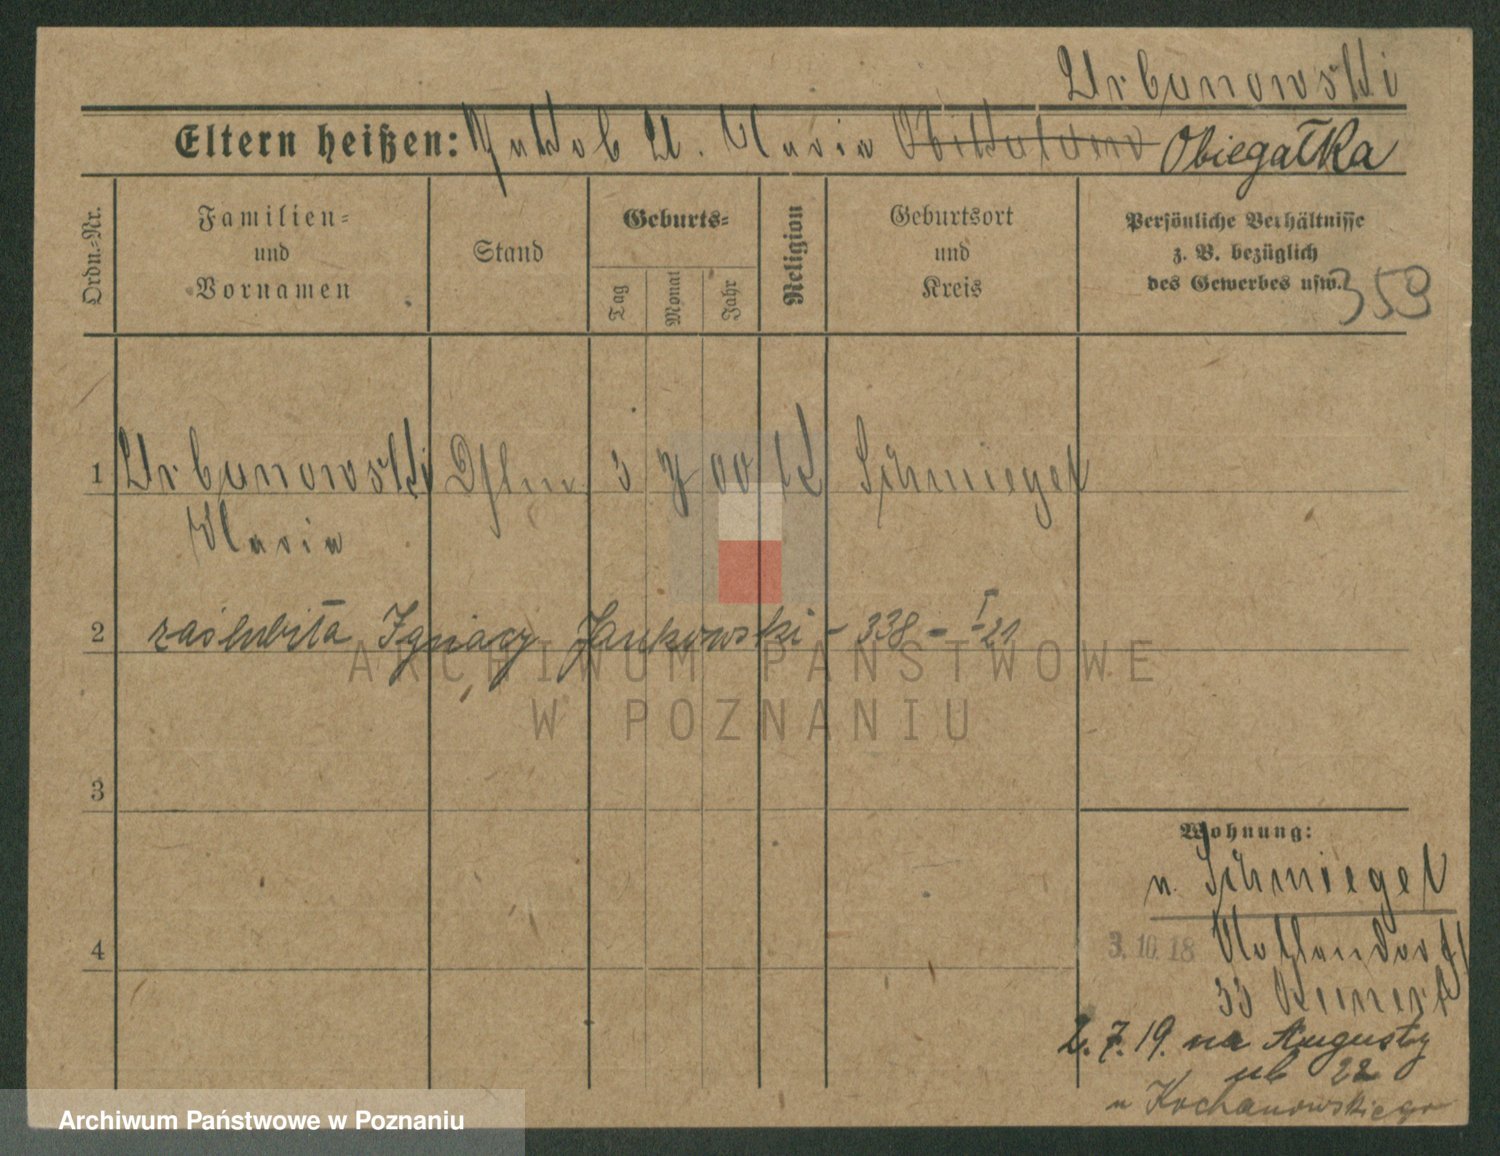 Urbanowski
Eltern heißen: Jakob u. Maria Obiegałka
Ordn.-Nr.
Familien-
und
Vornamen
Stand
Geburts-
Tag
Monat
Jahr
Religion
Geburtsort
und
Kreis
Persönliche Verhältnisse
z. B. bezüglich
des Gewerbes usw.
359
1 Urbanowski 3 7 00 k Schmiegel
Maria
2 zaślubiła Ignacy Jankowski - 338 - I - 21
ARCHIWUM PAŃSTWOWE
W POZNANIU
3
4
Wohnung:
n. Schmiegel
3.10.18
33
2.7.19. na Augusty
22
u Kochanowskiego
Archiwum Państwowe w Poznaniu